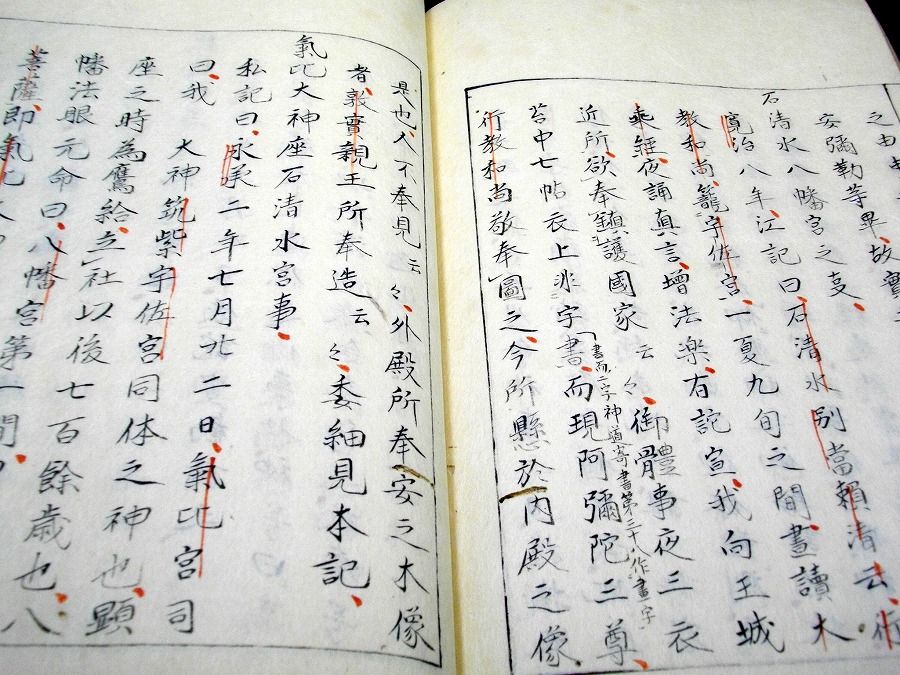 安彌勒等畢、故實
石清水八幡宮之㕝、
寛治八年、江記曰、石清水別當頼清云、行
教和尚、籠宇佐宮、一夏九旬之間、晝讀大
乘經、夜誦真言、増法楽、有託宣、我向王城
近所、欲奉鎮護國家云々、御體事、夜三衣
筥中七帖衣上、非字書、而現阿彌陀三尊、
書而二字神道寄書第二十八作畫字
行教和尚敬奉圖之、今所懸於内殿之像
是也、人不奉見云々、外殿所奉安之木像
者、敦實親王所奉造云々、委細見本記、
氣比大神座石清水宮事、
私記曰、永承二年七月廿二日、氣比宮司
曰、我大神筑紫宇佐宮同体之神也、顕
座之時為鷹給、立社以後七百餘歳也、八
幡法眼元命曰、八幡宮第一間、
菩薩、即氣比